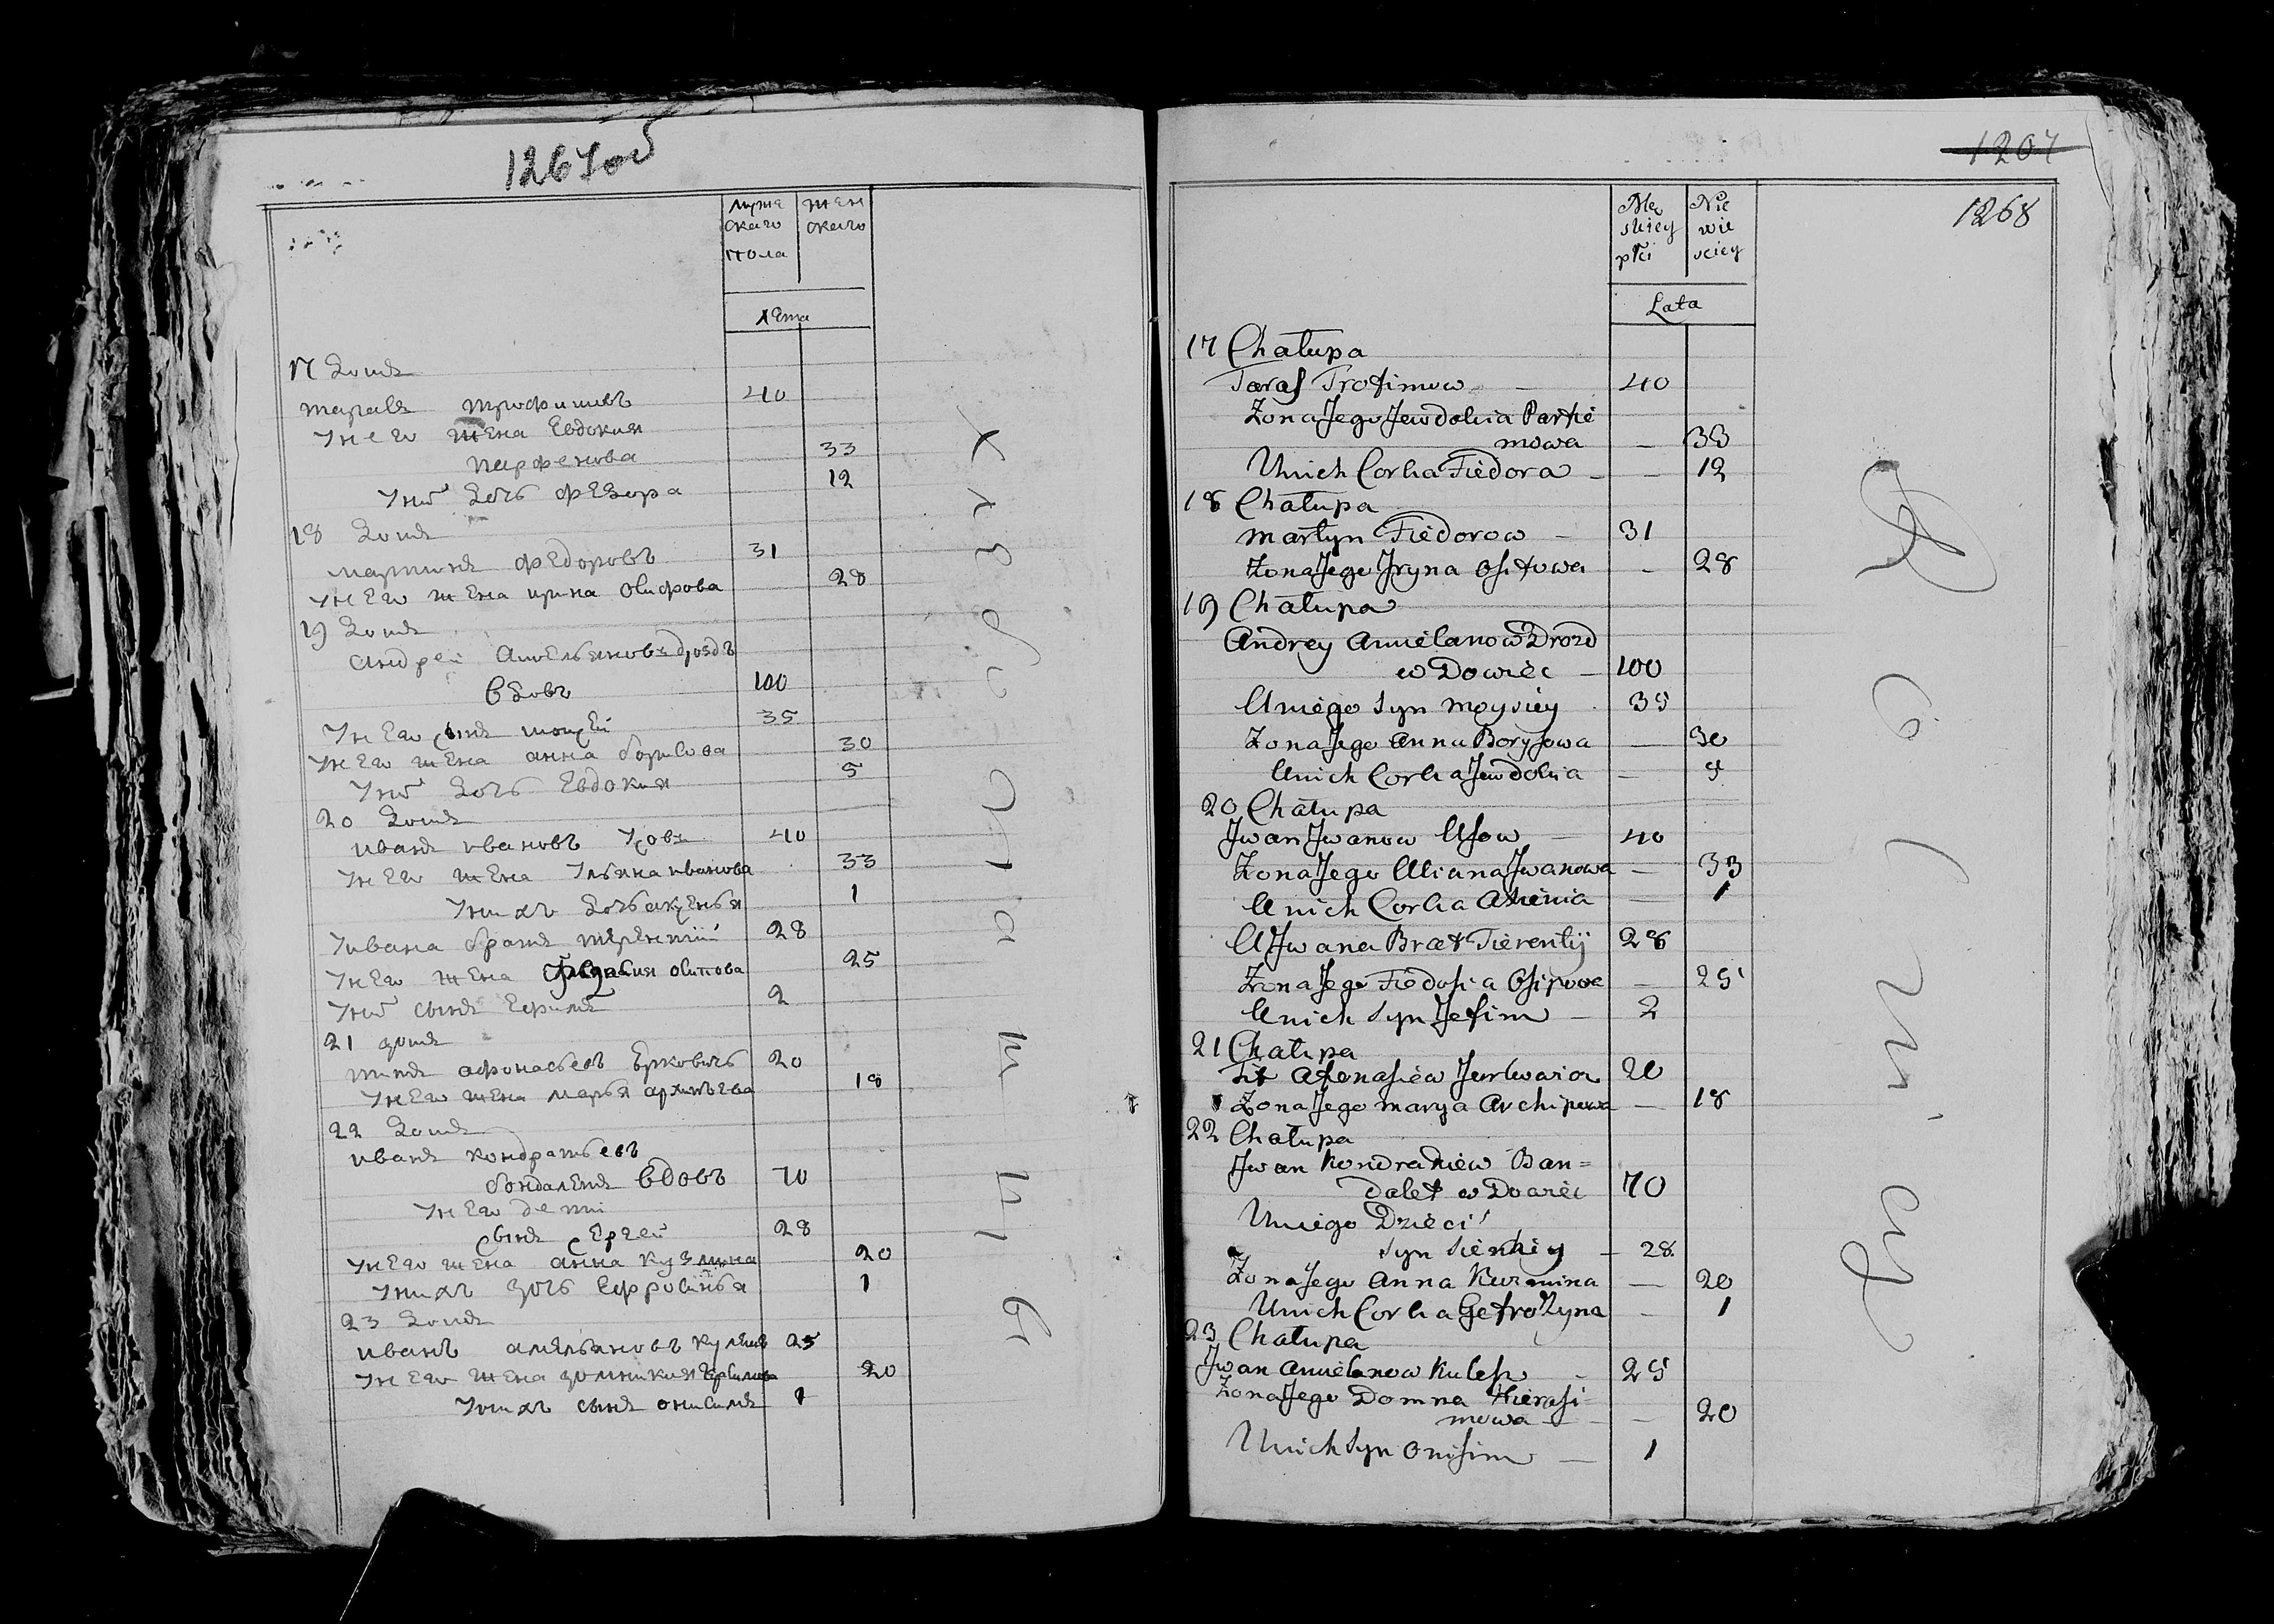 1267об
муже
скаго
пола
жен
скаго
лета
17 домъ
тарасъ трофимовъ 40
у него жена Евдокия
парфенова 33
у них дочь федора 12
18 домъ
мартинъ федоровъ 31
у него жена ирина осифова 28
19 домъ
андрей амельяновъ дроздъ
вдовъ 100
у него сынъ мосей 35
у него жена анна борисова 30
у них дочь Евдокия 5
20 домъ
иванъ ивановъ усовъ 40
у него жена ульяна иванова 33
у нихъ дочь аксенья 1
у ивана братъ терентий 28
у него жена осипова 25
у них сынъ Ефимъ 2
21 домъ
титъ афонасьевъ юрковичь 20
у него жена марья архипьева 18
22 домъ
иванъ кондратьевъ
бондалетъ вдовъ 70
у него дети
сынъ сергей 28
у него жена анна кузмина 20
у нихъ дочь Ефросинья 1
23 домъ
иванъ амельяновъ кулешъ 25
у него жена домникия 20
у нихъ сынъ онисимъ 1
крестьяны
1207
1268
Mę
skiey
płci
Nie
wie
sciey
Lata
17 Chałupa
Taras Trofimow — 40
Żona Jego Jewdokia Parfie
mowa — 33
U nich Corka Fiedora — — 12
18 Chałupa
Martyn Fiedorow — 31
Żona Jego Jryna Osifowa — 28
19 Chałupa
Andrey Amielanow Drozd
wDowiec — 100
U niego Syn Moysiey 35
Żona Jego Anna Borysowa — 30
U nich Corka Jewdokia — 5
20 Chałupa
Jwan Jwanow Usow — 40
Żona Jego Uliana Jwanowa — 33
U nich Corka Axienia — 1
U Jwana Brat Tierentij 28
Żona Jego Fiedosia Osipowa — 25
U nich Syn Jefim — 2
21 Chałupa
Tit Afonasiew Jurkowicz 20
Żona Jego Marya Archipowa — 18
22 Chałupa
Jwan Kondratiew Ban=
dalet wDowiec 70
U niego Dzieci
Syn Sierhiey — 28
Żona Jego Anna Kuzmina — 20
U nich Corka Gefrozyna — 1
23 Chałupa
Jwan Amielanow Kulesz — 25
Żona Jego Domna Hierasi
mowa — — 20
U nich Syn Onisim — 1